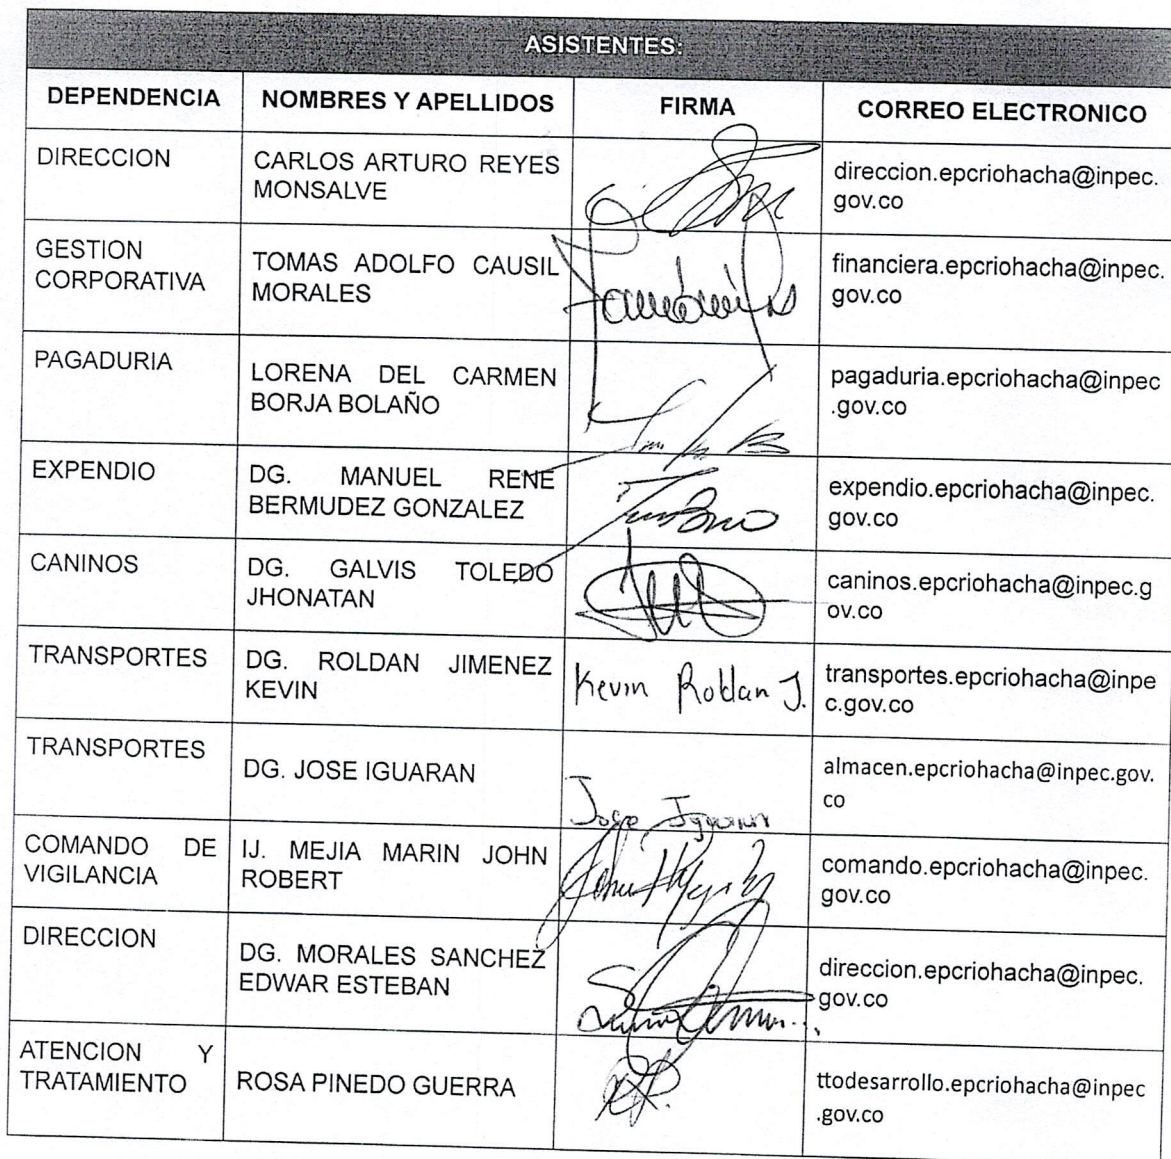 ASISTENTES:
DEPENDENCIA NOMBRES Y APELLIDOS FIRMA CORREO ELECTRONICO
DIRECCION
CARLOS ARTURO REYES
MONSALVE
direccion.epcriohacha@inpec.
gov.co
GESTION
CORPORATIVA
TOMAS ADOLFO CAUSIL
MORALES
financiera.epcriohacha@inpec.
gov.co
PAGADURIA
LORENA DEL CARMEN
BORJA BOLAÑO
pagaduria.epcriohacha@inpec
.gov.co
EXPENDIO
DG. MANUEL RENE
BERMUDEZ GONZALEZ
expendio.epcriohacha@inpec.
gov.co
CANINOS
DG. GALVIS TOLEDO
JHONATAN
caninos.epcriohacha@inpec.g
ov.co
TRANSPORTES
DG. ROLDAN JIMENEZ
KEVIN
Kevin Roldan J.
transportes.epcriohacha@inpe
c.gov.co
TRANSPORTES
DG. JOSE IGUARAN
Jose Iguaran
almacen.epcriohacha@inpec.gov.
co
COMANDO DE
VIGILANCIA
IJ. MEJIA MARIN JOHN
ROBERT
comando.epcriohacha@inpec.
gov.co
DIRECCION
DG. MORALES SANCHEZ
EDWAR ESTEBAN
direccion.epcriohacha@inpec.
gov.co
ATENCION Y
TRATAMIENTO
ROSA PINEDO GUERRA
ttodesarrollo.epcriohacha@inpec
.gov.co